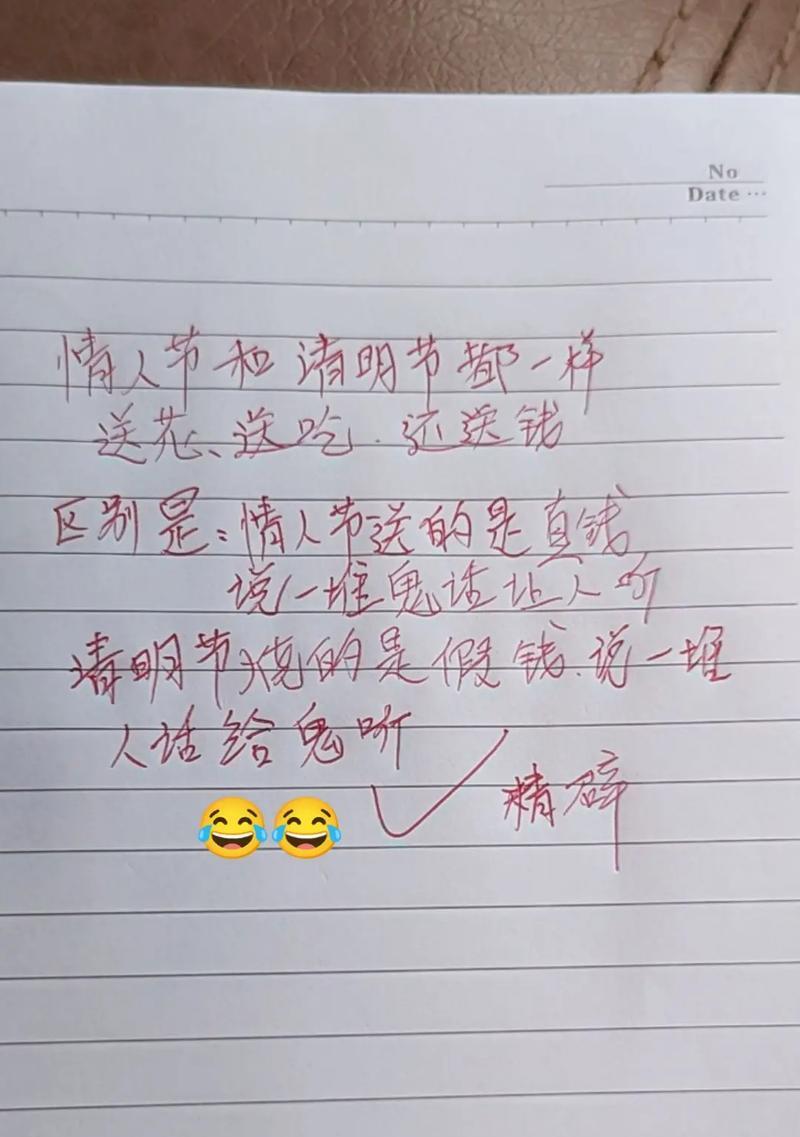 No
Date ...
情人节和清明节都一样
送花、送吃.还送钱
区别是:情人节送的是真钱
说一堆鬼话让人听
清明节烧的是假钱.说一堆
人话给鬼听
精辟